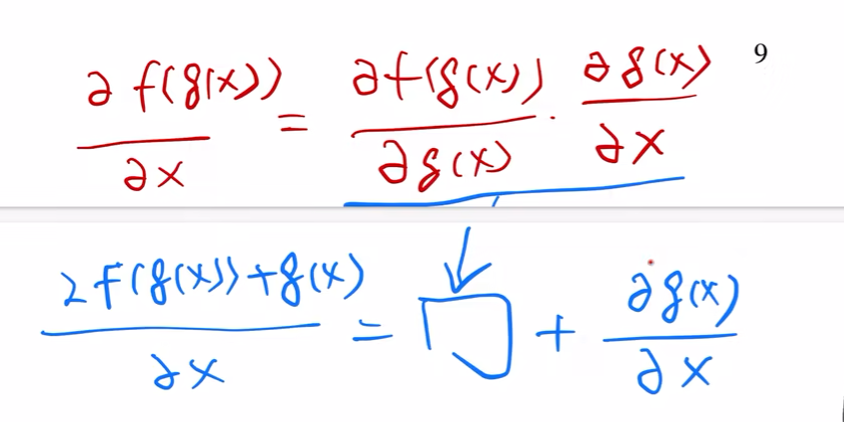 ∂f(g(x))/∂x = ∂f(g(x))/∂g(x) · ∂g(x)/∂x
9
∂f(g(x))+g(x)/∂x = □ + ∂g(x)/∂x